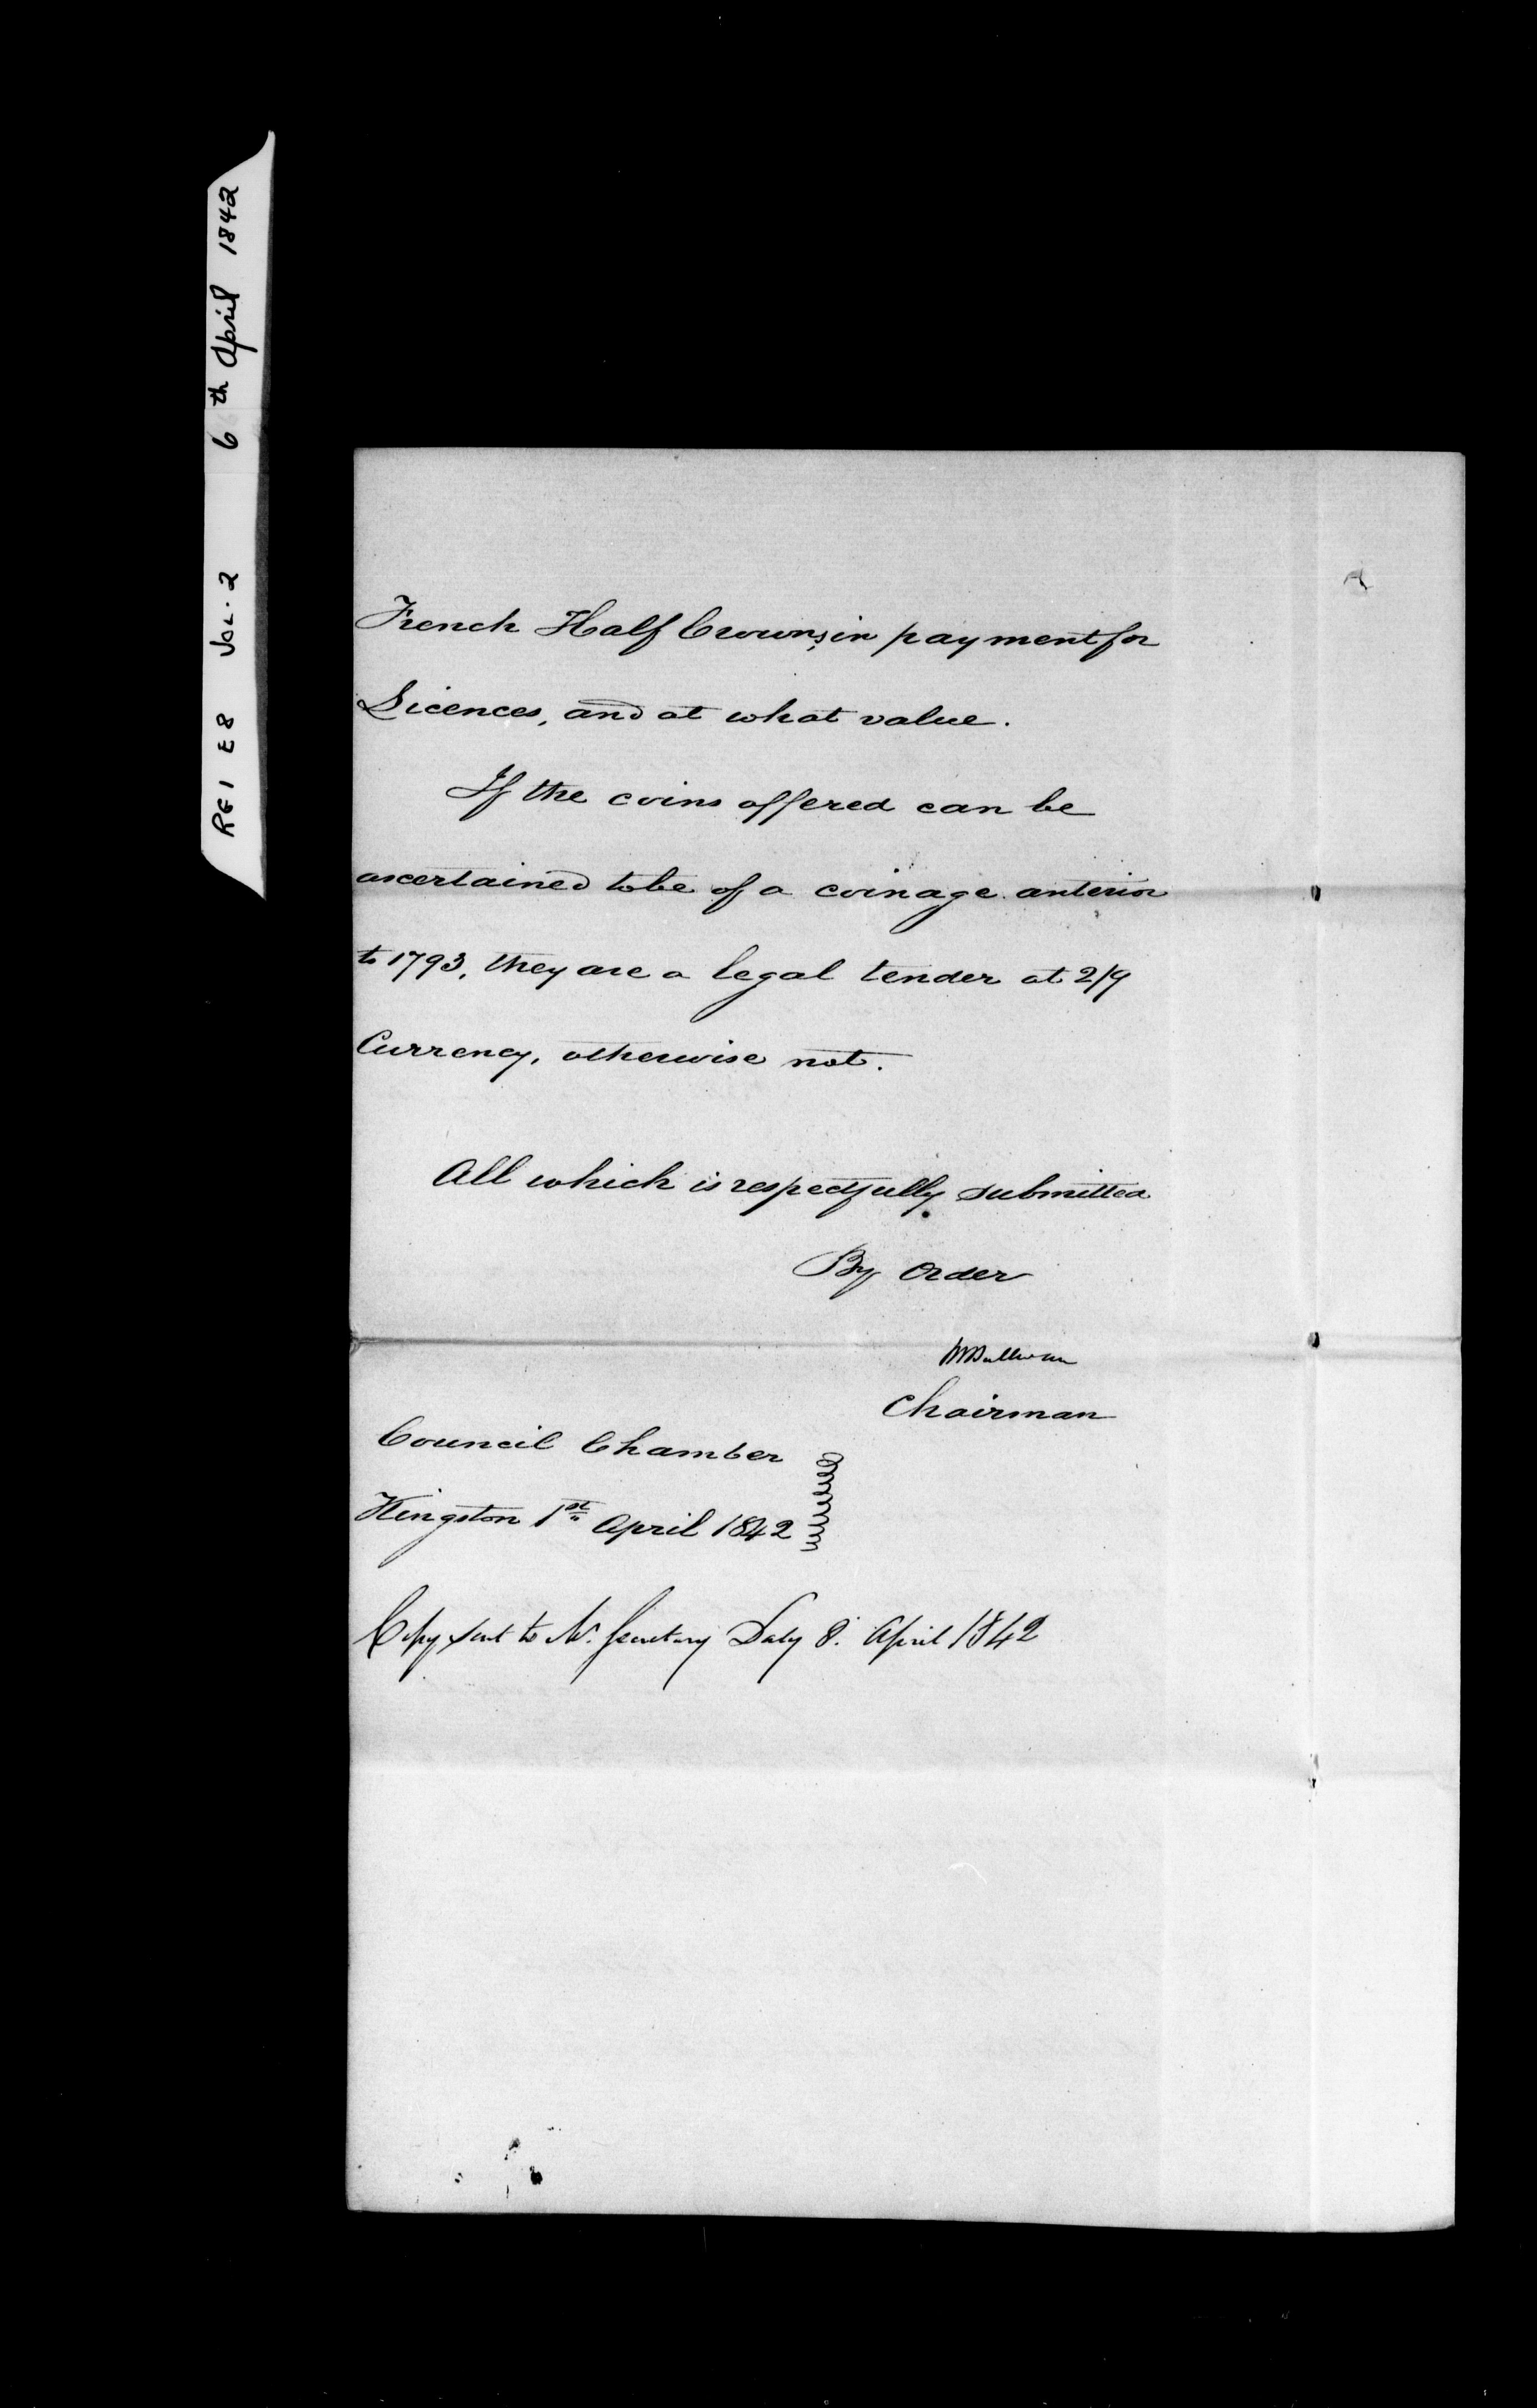 RG 1 E8 Vol. 2 6 th April 1842
French Half Crowns, in payment for
Licences, and at what value.
If the coins offered can be
ascertained to be of a coinage anterior
to 1793, they are a legal tender at 2/9
Currency, otherwise not.
All which is respectfully submitted
By Order
RBSullivan
Chairman
Council Chamber
Kingston 1st April 1842
Copy sent to Mr. Secretary Daly 8. April 1842